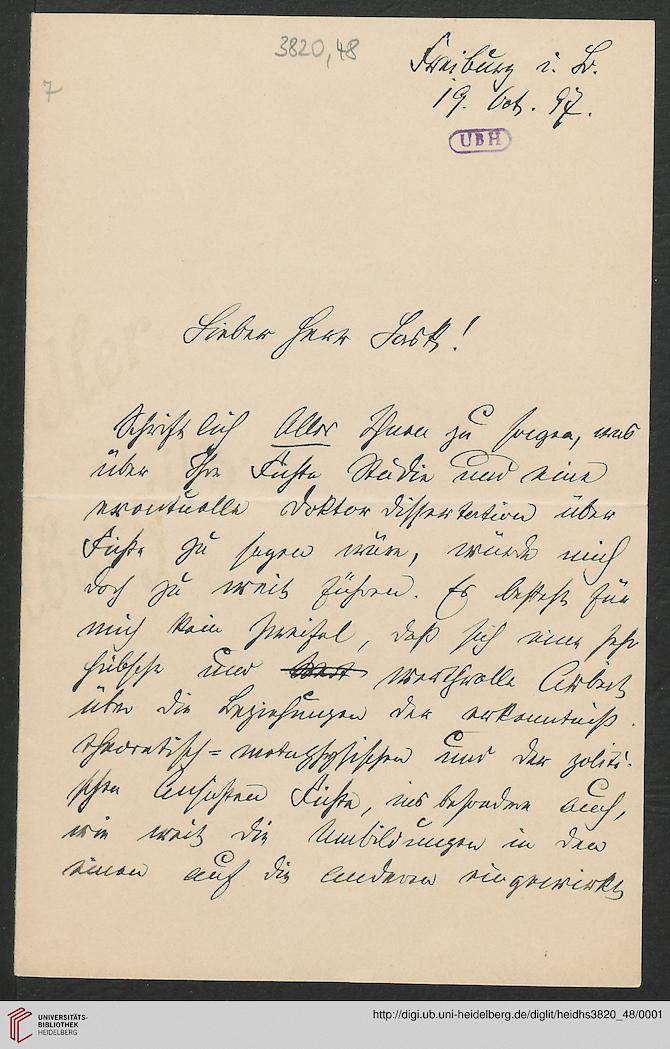 3820,48
7
Freiburg i. B.
19. Oct. 97.
UBH
Lieber Herr Lask!
Schriftlich Alles Ihnen zu sagen, was
über Ihre Fichte Studie und eine
eventuelle Doktor Dissertation über
Fichte zu sagen wäre, würde mich
doch zu weit führen. Es besteht für
mich kein Zweifel, daß sich eine sehr
hübsche und werthvolle Arbeit
über die Beziehungen der erkenntniß-
theoretisch=metaphysischen und der politi-
schen Ansichten Fichtes, insbesondere auch,
wie weit die Umbildungen in den
einen auf die anderen eingewirkt
UNIVERSITÄTS-
BIBLIOTHEK
HEIDELBERG
http://digi.ub.uni-heidelberg.de/diglit/heidhs3820_48/0001